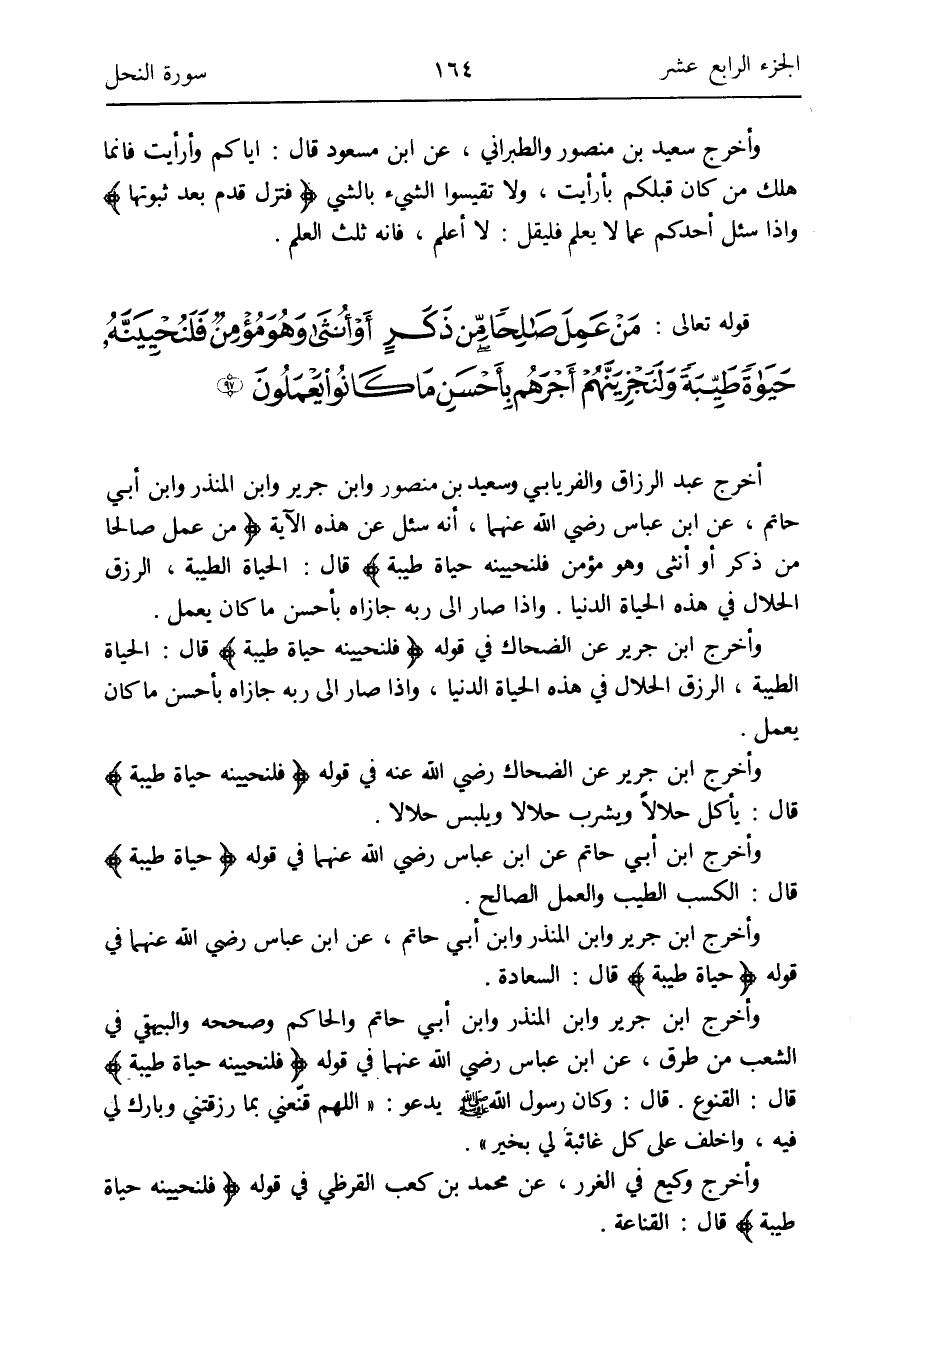 الجزء الرابع عشر ١٦٤ سورة النحل
وأخرج سعيد بن منصور والطبراني ، عن ابن مسعود قال : اياكم وأرأيت فانما
هلك من كان قبلكم بأرأيت ، ولا تقيسوا الشيء بالشي ﴿ فتزل قدم بعد ثبوتها ﴾
واذا سئل أحدكم عما لا يعلم فليقل : لا أعلم ، فانه ثلث العلم .
قوله تعالى : مَنْ عَمِلَ صَٰلِحًا مِّن ذَكَرٍ أَوْ أُنثَىٰ وَهُوَ مُؤْمِنٌ فَلَنُحْيِيَنَّهُۥ
حَيَوٰةً طَيِّبَةً وَلَنَجْزِيَنَّهُمْ أَجْرَهُم بِأَحْسَنِ مَا كَانُوا۟ يَعْمَلُونَ ﴿٩٧﴾
أخرج عبد الرزاق والفريابي وسعيد بن منصور وابن جرير وابن المنذر وابن أبي
حاتم ، عن ابن عباس رضي الله عنهما ، أنه سئل عن هذه الآية ﴿ من عمل صالحا
من ذكر أو أنثى وهو مؤمن فلنحيينه حياة طيبة ﴾ قال : الحياة الطيبة ، الرزق
الحلال في هذه الحياة الدنيا . واذا صار الى ربه جازاه بأحسن ما كان يعمل .
وأخرج ابن جرير عن الضحاك في قوله ﴿ فلنحيينه حياة طيبة ﴾ قال : الحياة
الطيبة ، الرزق الحلال في هذه الحياة الدنيا ، واذا صار الى ربه جازاه بأحسن ما كان
يعمل .
وأخرج ابن جرير عن الضحاك رضي الله عنه في قوله ﴿ فلنحيينه حياة طيبة ﴾
قال : يأكل حلالاً ويشرب حلالا ويلبس حلالا .
وأخرج ابن أبي حاتم عن ابن عباس رضي الله عنهما في قوله ﴿ حياة طيبة ﴾
قال : الكسب الطيب والعمل الصالح .
وأخرج ابن جرير وابن المنذر وابن أبي حاتم ، عن ابن عباس رضي الله عنهما في
قوله ﴿ حياة طيبة ﴾ قال : السعادة .
وأخرج ابن جرير وابن المنذر وابن أبي حاتم والحاكم وصححه والبيهقي في
الشعب من طرق ، عن ابن عباس رضي الله عنهما في قوله ﴿ فلنحيينه حياة طيبة ﴾
قال : القنوع . قال : وكان رسول الله ﷺ يدعو : « اللهم قنّعني بما رزقتني وبارك لي
فيه ، واخلف على كل غائبة لي بخير » .
وأخرج وكيع في الغرر ، عن محمد بن كعب القرظي في قوله ﴿ فلنحيينه حياة
طيبة ﴾ قال : القناعة .